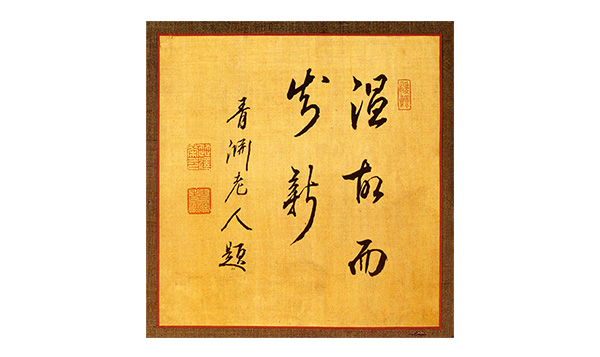 温故而
知新
青淵老人題